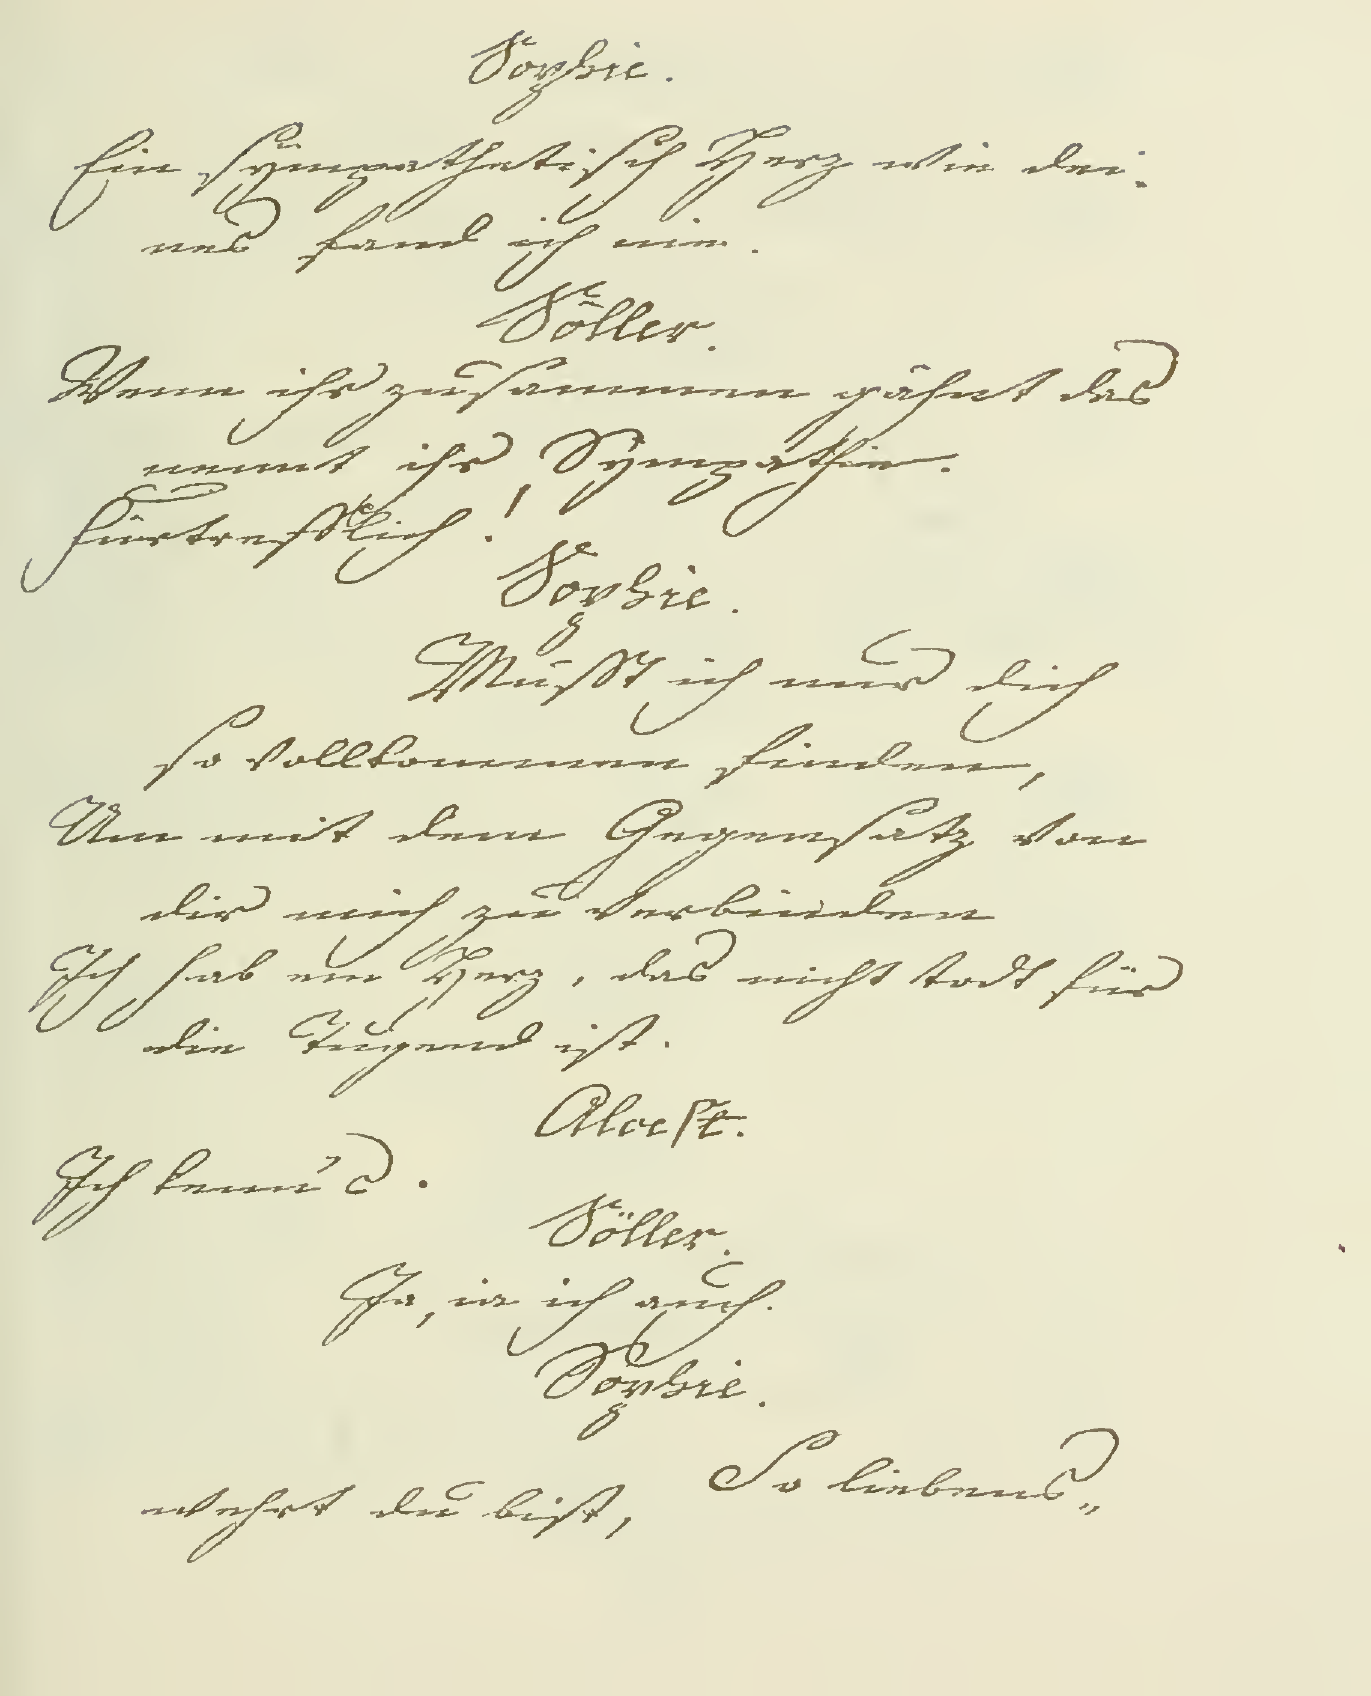 Sophie.
Ein sympathetisch Herz wie dei-
nes fand ich nie.
Söller.
Wenn ihr zusammen gähnt das
nennt ihr Sympathie.
Fürtrefflich!
Sophie.
Musst ich nur dich
so vollkommen finden,
Um mit dem Gegensatz von
dir mich zu verbinden
Ich hab ein Herz, das nicht todt für
die Tugend ist.
Alcest.
Ich kenn's.
Söller.
Ja, ia ich auch.
Sophie.
So liebens„
wehrt du bist,